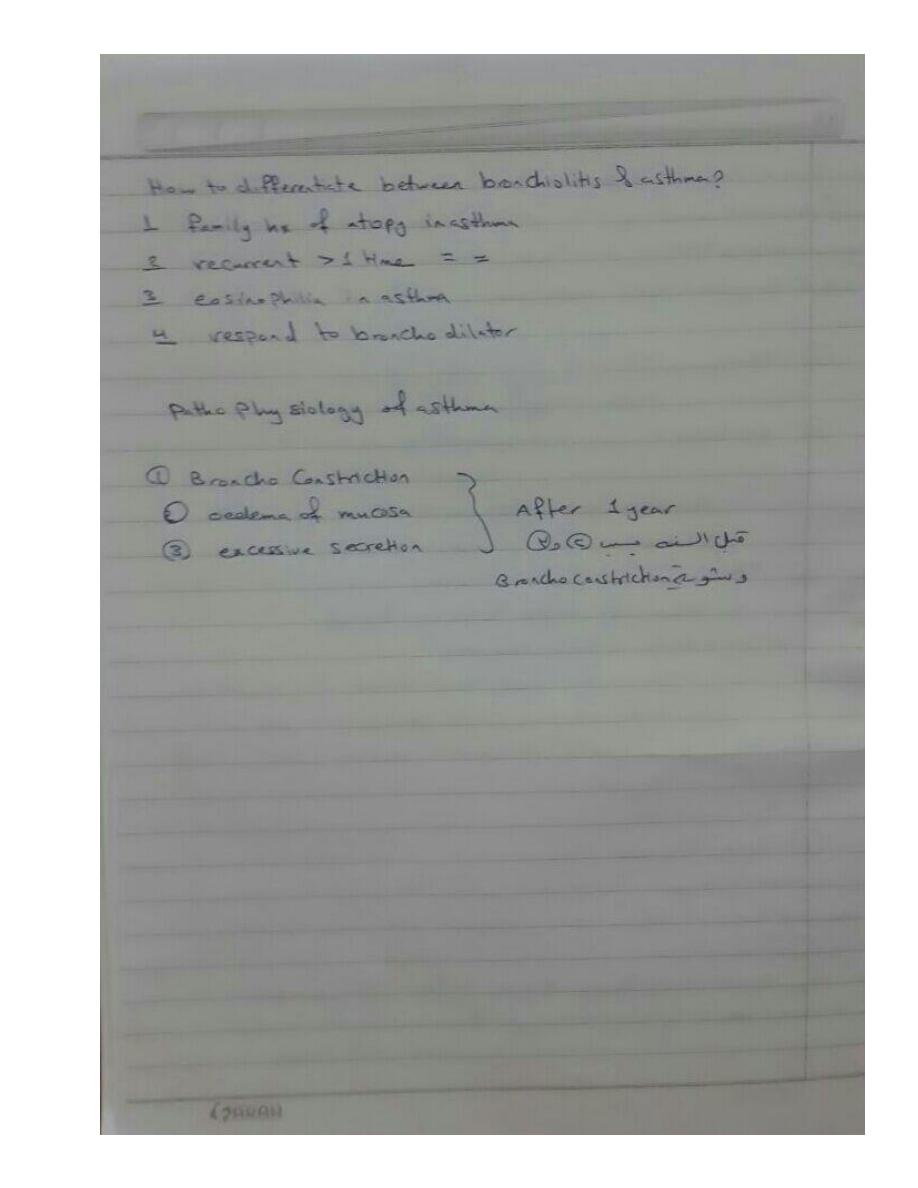 How to differentiate between bronchiolitis & asthma?
1 family hx of atopy in asthma
2 recurrent > 1 time = =
3 eosinophilia in asthma
4 respond to broncho dilator
Patho Physiology of asthma
① Broncho Constriction
② oedema of mucosa
③ excessive secretion
After 1 year
قبل السنه بسبب ② و ③
و شوية Broncho constriction